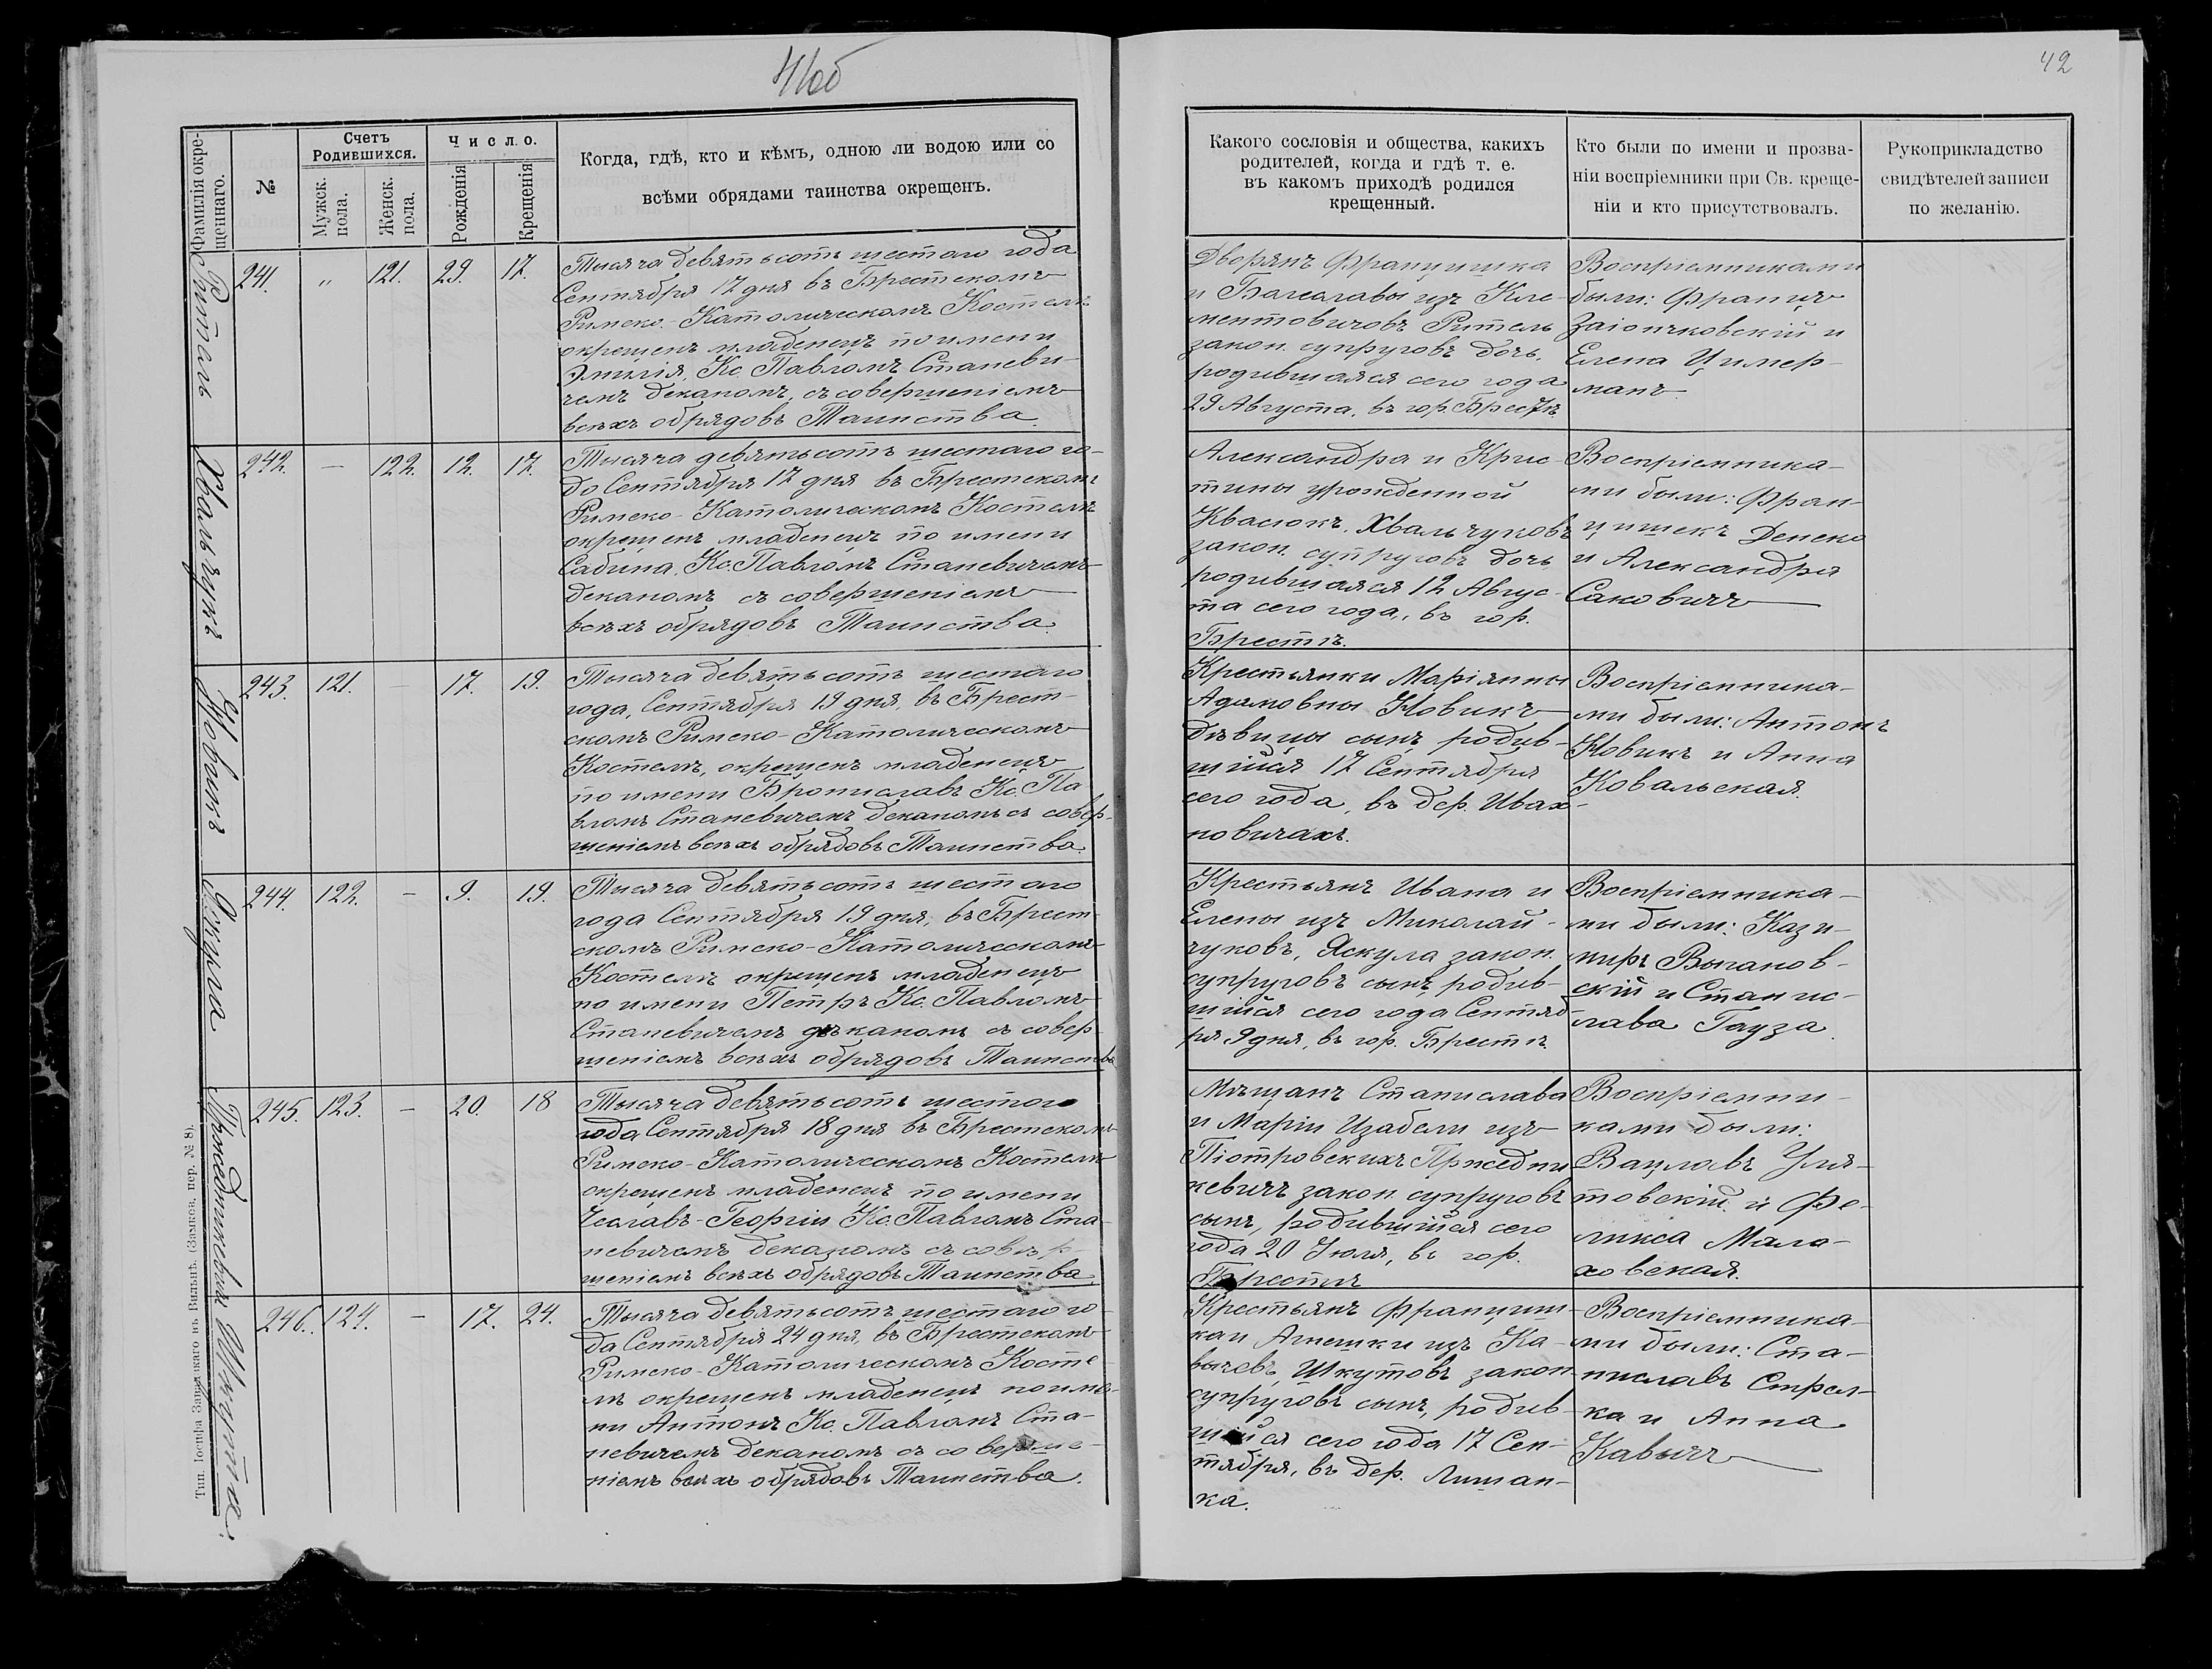 41об
42
Фамилія окре-
щеннаго.
№
Счетъ
Родившихся.
Мужск.
пола.
Женск.
пола.
Число.
Рожденія
Крещенія
Когда, гдѣ, кто и кѣмъ, одною ли водою или со
всѣми обрядами таинства окрещенъ.
Какого сословія и общества, какихъ
родителей, когда и гдѣ т. е.
въ какомъ приходѣ родился
крещенный.
Кто были по имени и прозва-
ніи воспріемники при Св. креще-
ніи и кто присутствовалъ.
Рукоприкладство
свидѣтелей записи
по желанію.
Рытель
241. " 121. 29. 17.
Тысяча девятьсотъ шестаго года
Сентября 17 дня въ Брестскомъ
Римско-Католическомъ Костелѣ
окрещенъ младенецъ по имени
Эмилія, Кс. Павломъ Станеви-
чемъ деканомъ, съ совершеніемъ
всѣхъ обрядовъ Таинства.
Дворянъ Францишка
и Багеславы изъ Кле-
ментовичовъ Рытель
закон. супруговъ дочь,
родившаяся сего года
29 Августа, въ гор. Брестѣ
Воспріемниками
были: Францъ
Заіончковскій и
Елена Цимер-
манъ
Хвальчукъ
242. — 122. 12. 17.
Тысяча девятьсотъ шестаго го-
да Сентября 17 дня въ Брестскомъ
Римско-Католическомъ Костелѣ
окрещенъ младенецъ по имени
Сабина, Кс. Павломъ Станевичемъ
деканомъ съ совершеніемъ
всѣхъ обрядовъ Таинства.
Александра и Крис-
тины урожденной
Квасюкъ, Хвальчуковъ
закон. супруговъ дочь
родившаяся 12 Авгус-
та сего года, въ гор.
Брестѣ.
Воспріемника-
ми были: Фран-
цишекъ Денско
и Александра
Саковичъ
Новикъ
243. 121. — 17. 19.
Тысяча девятьсотъ шестаго
года, Сентября 19 дня, въ Брест-
скомъ Римско-Католическомъ
Костелѣ, окрещенъ младенецъ
по имени Брониславъ Кс. Па
вломъ Станевичемъ деканомъ съ совер-
шеніемъ всѣхъ обрядовъ Таинства.
Крестьянки Маріянны
Адамовны Новикъ
дѣвицы сынъ, родив-
шійся 17 Сентября
сего года, въ дер. Ивах-
новичахъ.
Воспріемника-
ми были: Антонъ
Новикъ и Анна
Ковальская.
Яскула
244. 122. — 9. 19.
Тысяча девятьсотъ шестаго
года Сентября 19 дня, въ Брест-
скомъ Римско-Католическомъ
Костелѣ окрещенъ младенецъ
по имени Петръ Кс. Павломъ
Станевичемъ деканомъ съ совер-
шеніемъ всѣхъ обрядовъ Таинства
Крестьянъ Ивана и
Елены изъ Миколай-
чуковъ, Яскула закон.
супруговъ сынъ, родив-
шійся сего года Сентяб-
ря 9 дня, въ гор. Брестѣ.
Воспріемника-
ми были: Кази-
миръ Выгановс-
кій и Станис-
лава Гауза.
Пржедпкевичъ
245. 123. — 20. 18
Тысяча девятьсотъ шестого
года Сентября 18 дня въ Брестскомъ
Римско-Католическомъ Костелѣ
окрещенъ младенецъ по имени
Чеславъ-Георгій Кс. Павломъ Ста-
невичемъ деканомъ съ совер-
шеніемъ всѣхъ обрядовъ Таинства.
Мѣщанъ Станислава
и Маріи Изабели изъ
Піотровскихъ Пржедпи
кевичъ закон. супруговъ
сынъ, родившійся сего
года 20 Іюля, въ гор.
Брестѣ
Воспріемни-
ками были:
Вацлавъ Уля-
товскій и Фе-
ликса Мала-
ховская.
Шкутта.
246. 124. — 17. 24.
Тысяча девятьсотъ шестаго го-
да Сентября 24 дня, въ Брестскомъ
Римско-Католическомъ Косте-
лѣ окрещенъ младенецъ по име-
ни Антонъ Кс. Павломъ Ста-
невичемъ деканомъ съ соверше-
ніемъ всѣхъ обрядовъ Таинства.
Крестьянъ Францыш-
ка и Агнешки изъ Ка-
вычевъ, Шкутовъ закон.
супруговъ сынъ, родив-
шійся сего года 17 Сен-
тября, въ дер. Лишан-
ка.
Воспріемника-
ми были: Ста-
ниславъ Стрел-
ка и Анна
Кавычъ
Тип. Іосифа Завадзкаго въ Вильнѣ. (Замков. пер. № 8).